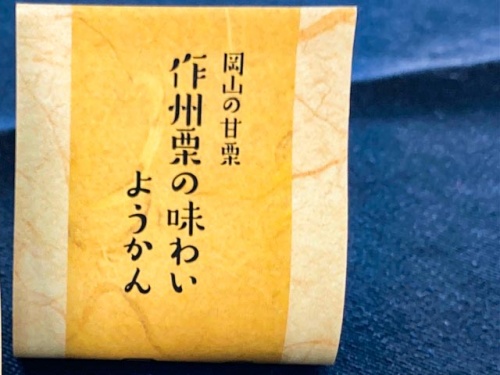 岡山の甘栗
作州栗の味わい
ようかん